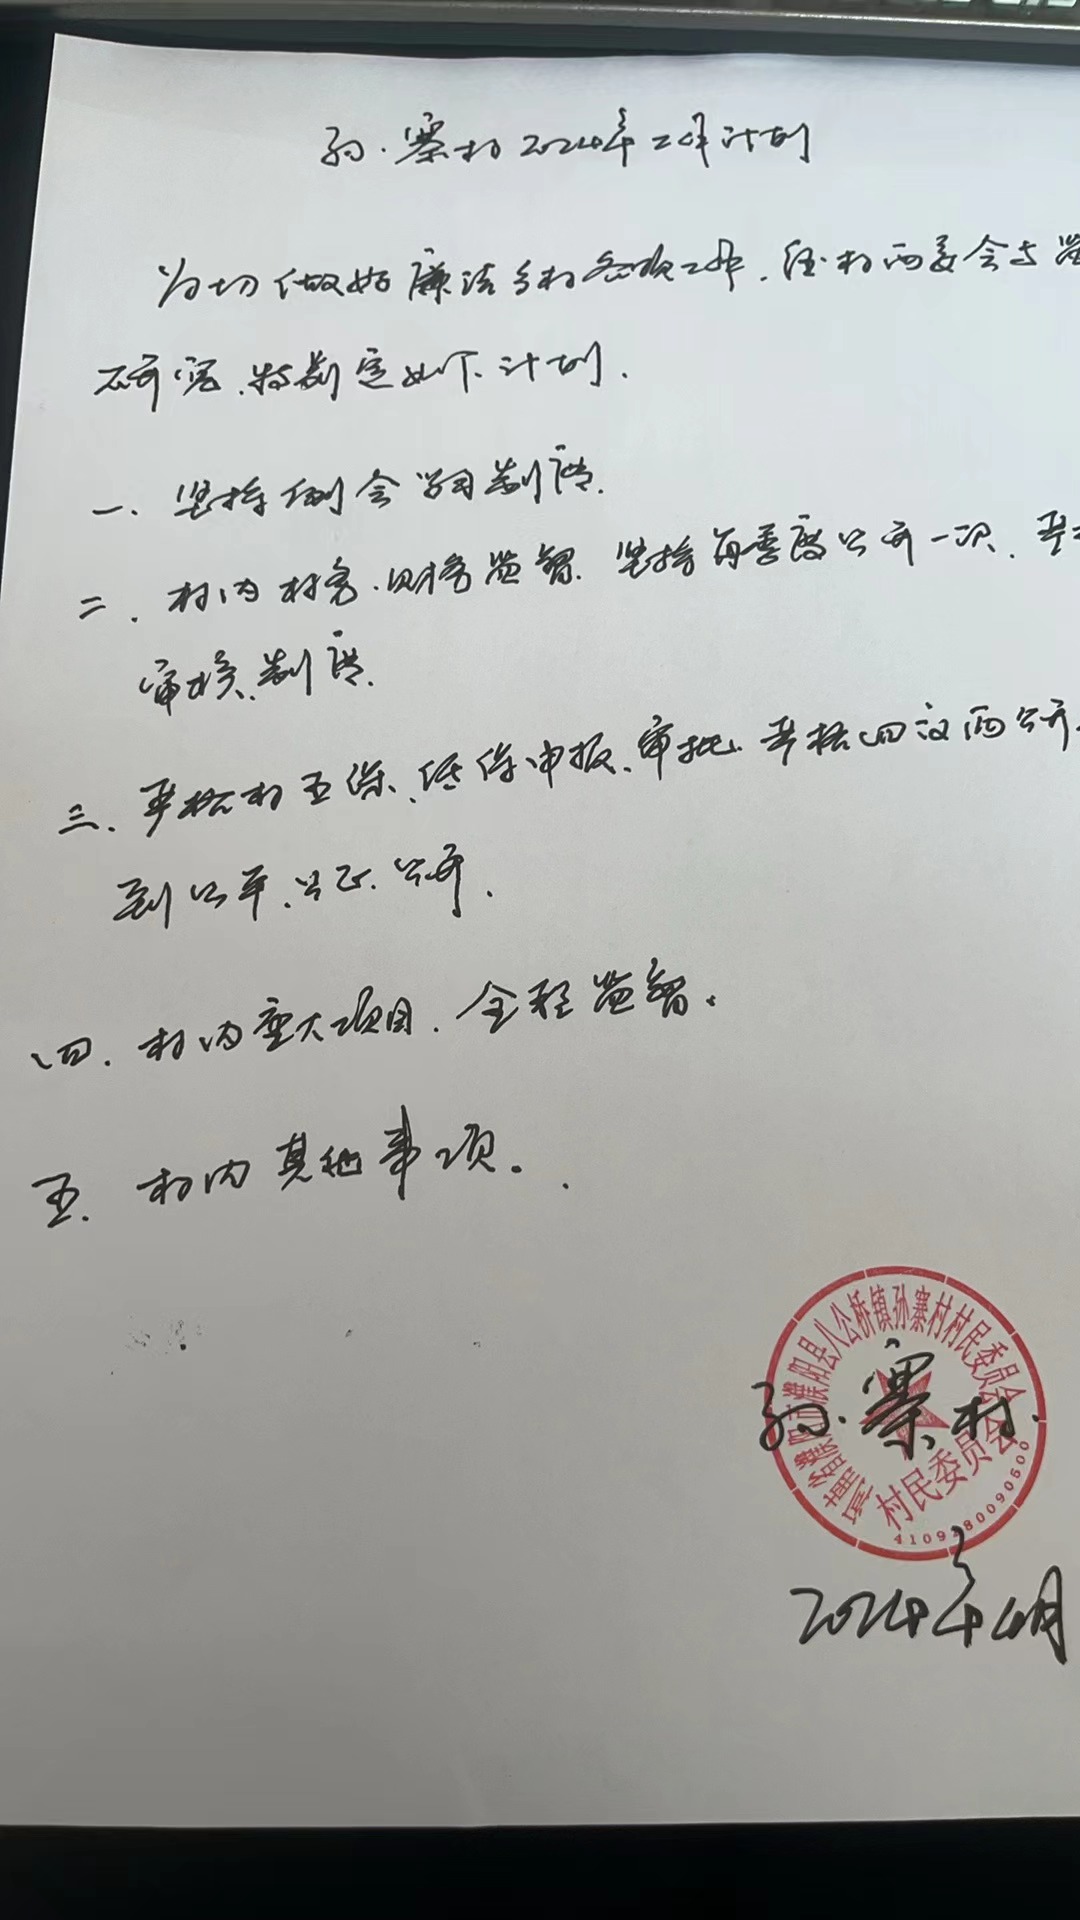 孙寨村2024年工作计划
为切做好廉洁乡村各项工作，经村两委会与监
研究，特制定如下计划．
一．坚持例会学习制度．
二．村内村务．财务监督．坚持每季度公开一次．严格
审核制度．
三．严格村五保、低保申报、审批．严格四议两公开
到公平．公正．公开．
四．村内重大项目．全程监督．
五．村内其他事项．
河南省濮阳市濮阳县八公桥镇孙寨村村民委员会
孙寨村
村民委员会
2024年4月